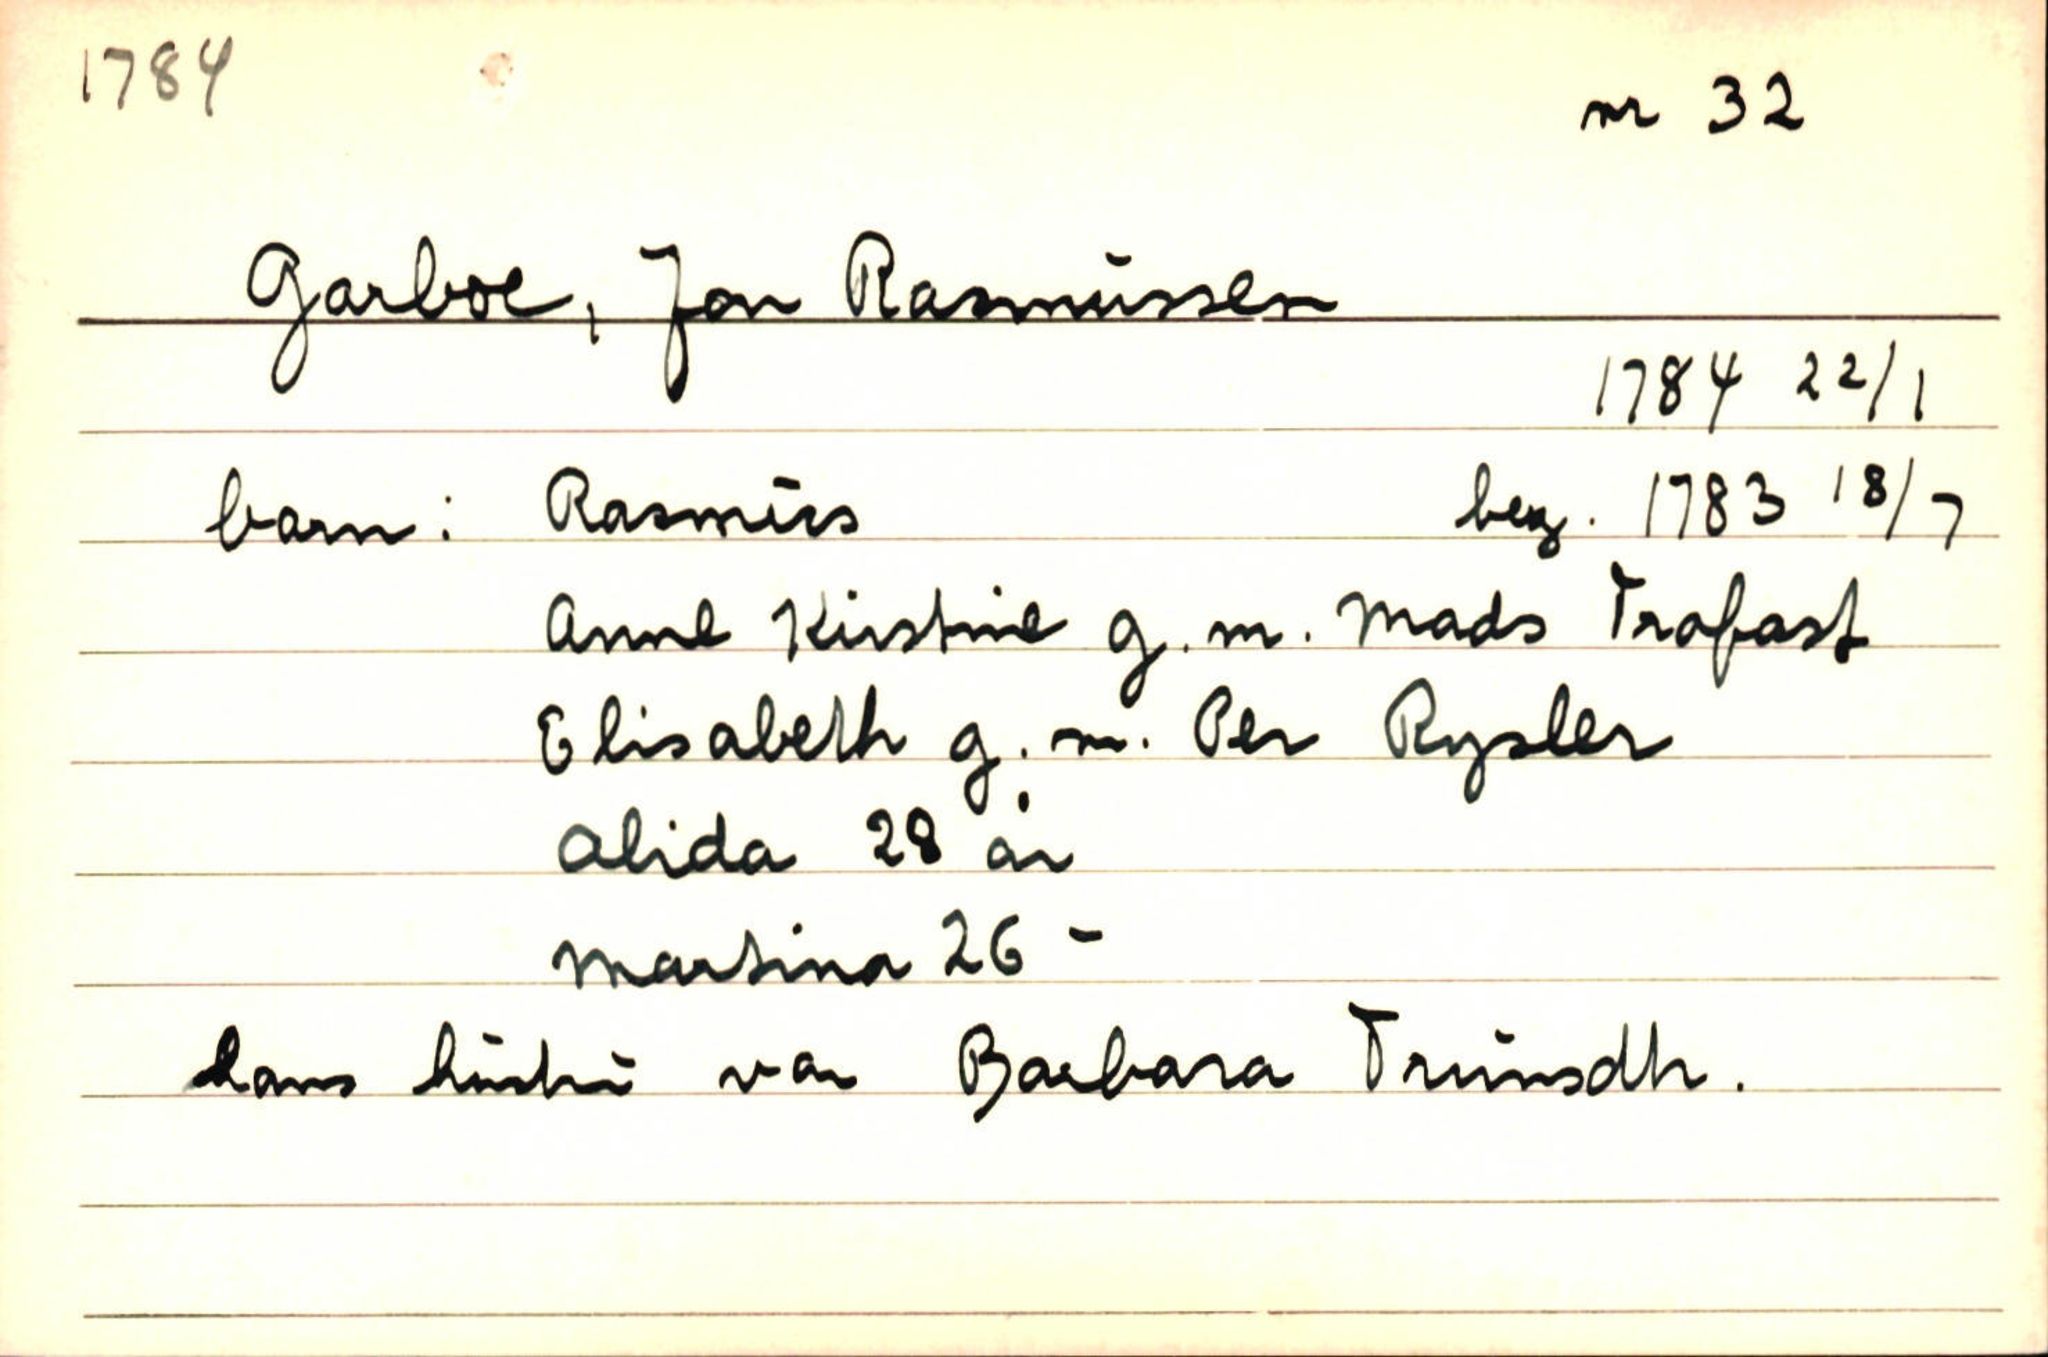 1784
nr 32
Garboe, Jon Rasmussen
1784 22/1
barn: Rasmus beg. 1783 18/7
Anne Kirstine g. m. Mads Trofast
Elisabeth g. m. Per Rysler
Alida 28 år
Martina 26 -
hans hustru var Barbara Trunsdtr.